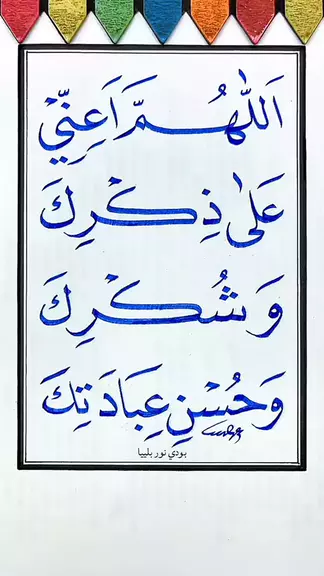 اَللّٰهُمَّ اَعِنِّيْ
عَلٰى ذِكْرِكَ
وَشُكْرِكَ
وَحُسْنِ عِبَادَتِكَ
بودي نور بلييا